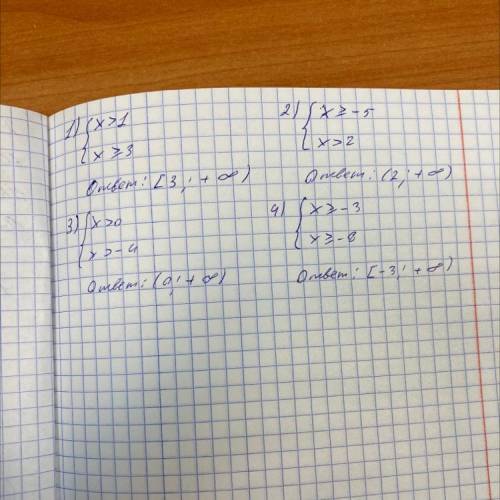 1) { x > 1
x ≥ 3
Ответ: [3; +∞)
2) { x ≥ -5
x > 2
Ответ: (2; +∞)
3) { x > 0
x > -4
Ответ: (0; +∞)
4) { x ≥ -3
x ≥ -8
Ответ: [-3; +∞)